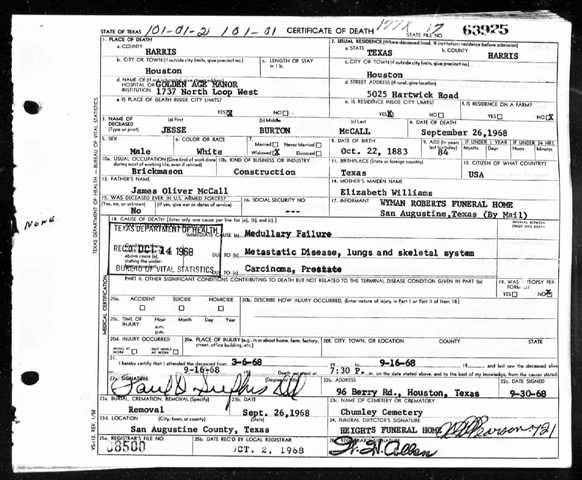 STATE OF TEXAS 101-01-2 101-01 CERTIFICATE OF DEATH 17 STATE FILE NO. 63925
1. PLACE OF DEATH
2. USUAL RESIDENCE (Where deceased lived. If institution: residence before admission)
a. COUNTY HARRIS
a. STATE TEXAS
b. COUNTY HARRIS
b. CITY OR TOWN (If outside city limits, give precinct no.) Houston
c. LENGTH OF STAY in 1 b.
c. CITY OR TOWN (If outside city limits, give precinct no.) Houston
d. NAME OF HOSPITAL OR INSTITUTION GOLDEN AGE MANOR
1737 North Loop West
d. STREET ADDRESS (If rural, give location) 5025 Hartwick Road
e. IS PLACE OF DEATH INSIDE CITY LIMITS? YES X NO
e. IS RESIDENCE INSIDE CITY LIMITS? YES X NO
f. IS RESIDENCE ON A FARM? YES NO X
3. NAME OF DECEASED (Type or print)
(a) First JESSE
(b) Middle BURTON
(c) Last McCALL
4. DATE OF DEATH September 26,1968
5. SEX Male
6. COLOR OR RACE White
7. Married Never Married Widowed X Divorced
8. DATE OF BIRTH Oct. 22, 1883
9. AGE (In years last birthday) 84
IF UNDER 1 YEAR Months Days
IF UNDER 24 HRS. Hours Min.
10a. USUAL OCCUPATION (Give kind of work done Brickmason
10b. KIND OF BUSINESS OR INDUSTRY Construction
11. BIRTHPLACE (State or foreign country) Texas
12. CITIZEN OF WHAT COUNTRY? USA
13. FATHER'S NAME James Oliver McCall
14. MOTHER'S MAIDEN NAME Elizabeth Williams
15. WAS DECEASED EVER IN U.S. ARMED FORCES? No
(If yes, give war or dates of service)
16. SOCIAL SECURITY NO. ---
17. INFORMANT WYMAN ROBERTS FUNERAL HOME
San Augustine,Texas (By Mail)
None
18. CAUSE OF DEATH [Enter only one cause per line for (a), (b), and (c).]
TEXAS DEPARTMENT OF HEALTH
IMMEDIATE CAUSE (a) Medullary Failure
REC'D OCT 14 1968
DUE TO (b) Metastatic Disease, lungs and skeletal system
BUREAU OF VITAL STATISTICS
DUE TO (c) Carcinoma, Prostate
PART II. OTHER SIGNIFICANT CONDITIONS CONTRIBUTING TO DEATH BUT NOT RELATED TO THE TERMINAL DISEASE CONDITION GIVEN IN PART I
19. WAS AUTOPSY PERFORMED? YES NO X
20a. ACCIDENT SUICIDE HOMICIDE
20b. DESCRIBE HOW INJURY OCCURRED. (Enter nature of injury in Part I or Part II of item 18.)
20c. TIME OF INJURY Hour Month Day Year
a.m.
p.m.
20d. INJURY OCCURRED
20e. PLACE OF INJURY (e.g., in or about home, farm, factory, street, office building, etc.)
20f. CITY, TOWN, OR LOCATION COUNTY STATE
21. I hereby certify that I attended the deceased from 3-6-68 9-16-68
9-16-68 Death occurred at 7:30 P. m. on the date stated above, and to the best of my knowledge, from the causes stated
22a. SIGNATURE
22b. ADDRESS 96 Berry Rd., Houston, Texas
22c. DATE SIGNED 9-30-68
23a. BURIAL, CREMATION, REMOVAL (Specify) Removal
23b. DATE Sept. 26,1968
23c. NAME OF CEMETERY OR CREMATORY Chumley Cemetery
23d. LOCATION (City, town, or county) (State) San Augustine County, Texas
24. FUNERAL DIRECTOR'S SIGNATURE HEIGHTS FUNERAL HOME
25a. REGISTRAR'S FILE NO. 08500
25b. DATE REC'D BY LOCAL REGISTRAR OCT. 2, 1968
TEXAS DEPARTMENT OF HEALTH — BUREAU OF VITAL STATISTICS
MEDICAL CERTIFICATION
VS-112, REV. 1/58